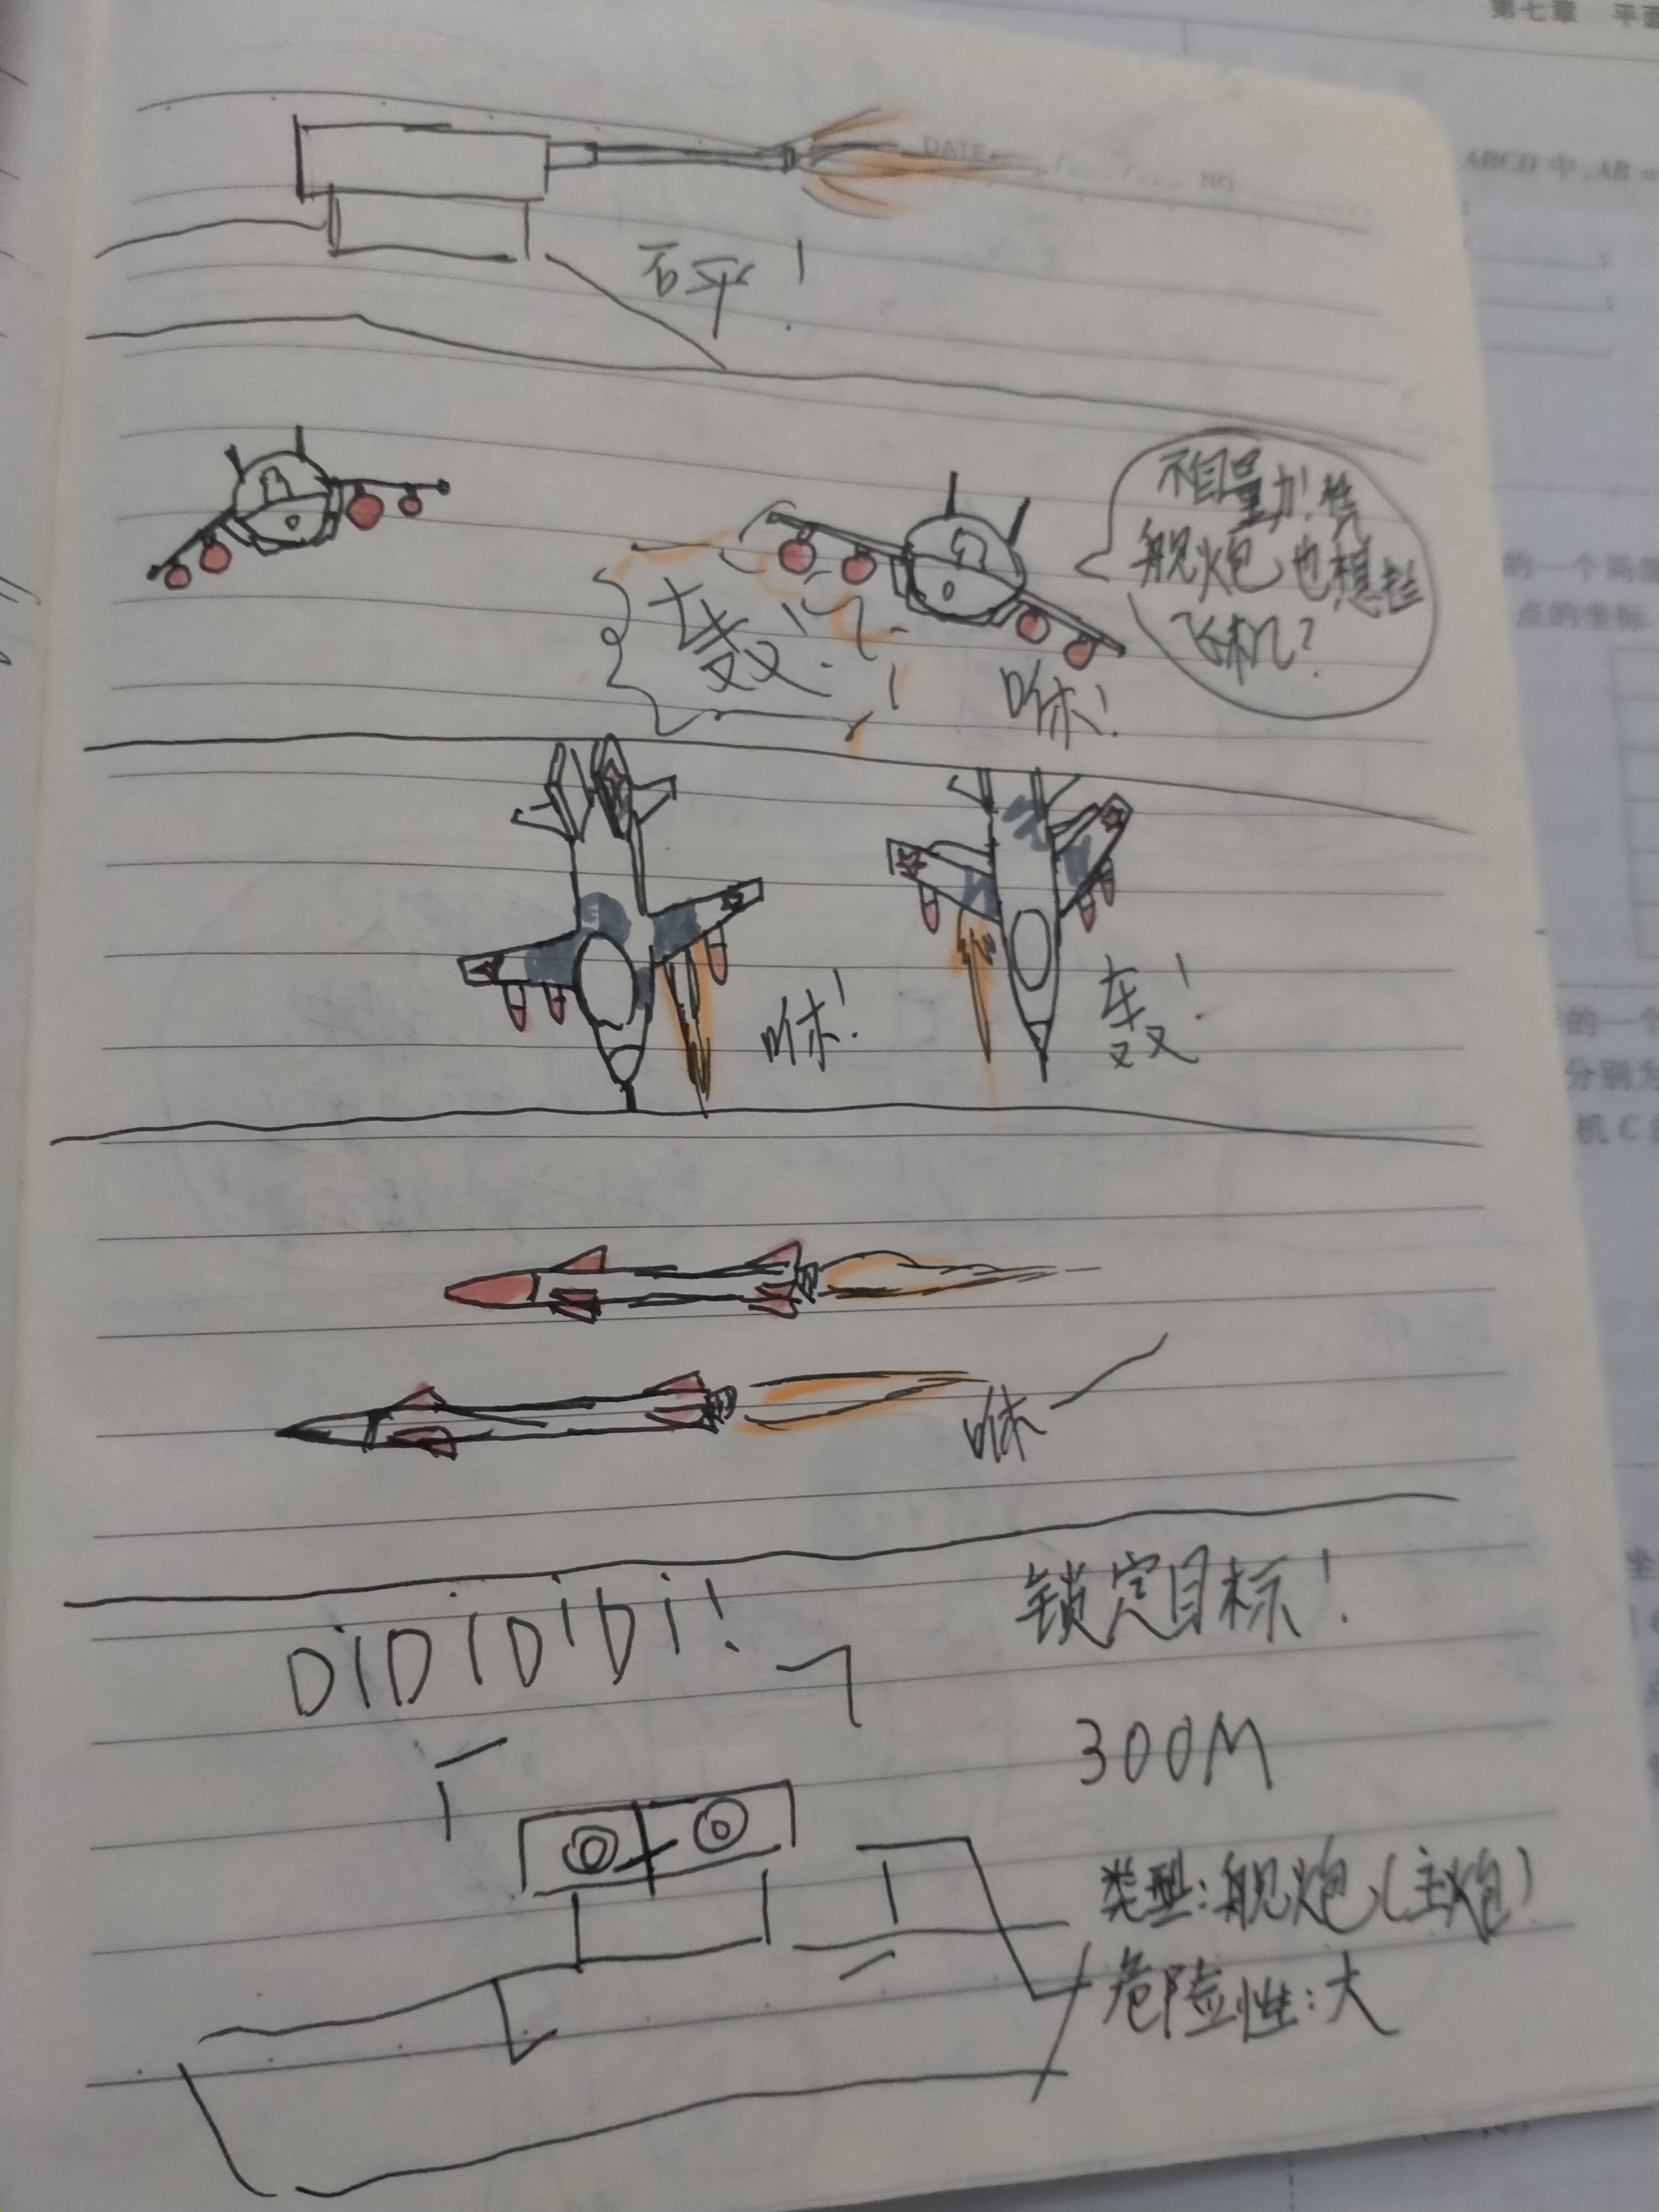 第七章 平面
DATE
NO
ABCD 中,AB =
砰!
不自量力!凭
舰炮也想拦
飞机?
轰!
咻!
的一个局部
点的坐标
咻!
轰!
的一个
分别为
机 C
咻
DiDiDiDi!
锁定目标!
300M
类型:舰炮(主炮)
危险性:大